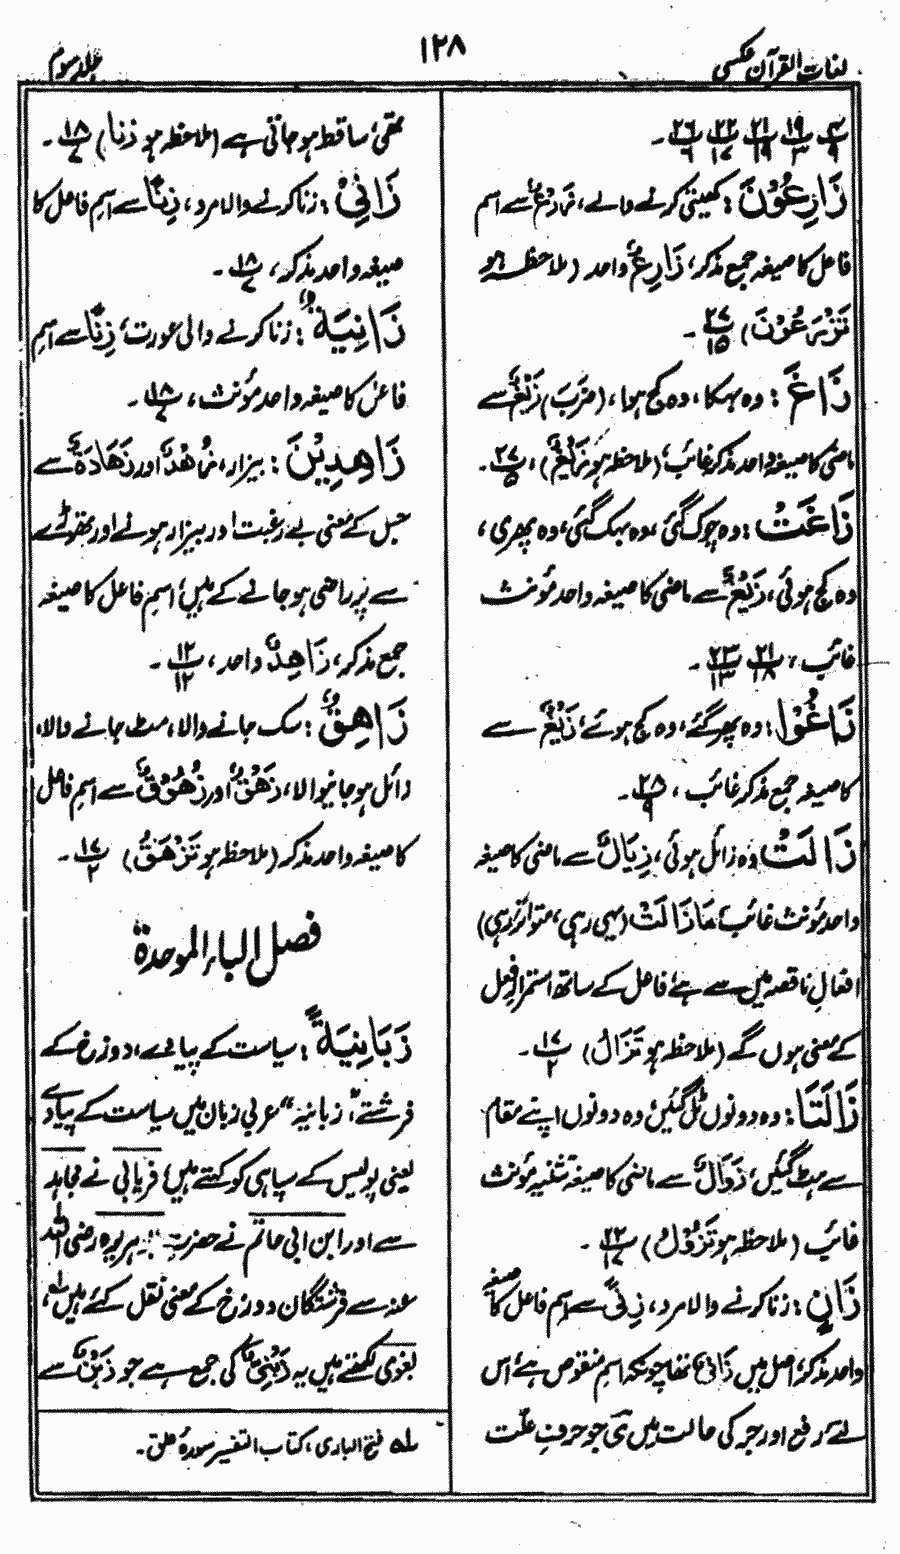 لغات القرآن عکسی
۱۲۸
جلد سوم
۳/۹ ۱۹/۳ ۲۱/۱۹ ۲۲/۱۷ ۲۶/۶ ۔
زَارِعُوْنَ : کھیتی کرنے والے، زَرْعٌ سے اسم
فاعل کا صیغہ جمع مذکر، زَارِعٌ واحد (ملاحظہ ہو
تَزْرَعُوْنَ) ۲۷/۱۵ ۔
زَاغَ : وہ بہکا، وہ کج ہوا، (ضَرَبَ) زَیْغٌ سے
ماضی کا صیغہ واحد مذکر غائب، (ملاحظہ ہو زَیْغٌ)، ۲۷/۵ ۔
زَاغَتْ : وہ چوک گئی، وہ بہک گئی، وہ پھری،
وہ کج ہوئی، زَیْغٌ سے ماضی کا صیغہ واحد مؤنث
غائب، ۲۱/۱۸ ۲۳/۱۳ ۔
زَاغُوْا : وہ پھر گئے، وہ کج ہوئے، زَیْغٌ سے
کا صیغہ جمع مذکر غائب، ۲۸/۹ ۔
زَالَتْ وہ زائل ہوئی، زِیَالٌ سے ماضی کا صیغہ
واحد مؤنث غائب، مَا زَالَتْ (یہی رہی، متواتر رہی)
افعالِ ناقصہ میں سے ہے، فاعل کے ساتھ استمرارِ فعل
کے معنی ہوں گے (ملاحظہ ہو تَزَالُ) ۱۷/۲ ۔
زَالَتَا : وہ دونوں ٹل گئیں، وہ دونوں اپنے مقام
سے ہٹ گئیں، زَوَالٌ سے ماضی کا صیغہ تثنیہ مؤنث
غائب (ملاحظہ ہو تَزُوْلُ) ۲۲/۱۷ ۔
زَانٍ : زنا کرنے والا مرد، زِنًی سے اسم فاعل کا صیغہ
واحد مذکر، اصل میں زَانِیٌ تھا چونکہ اسم منقوص ہے، اس
لئے رفع اور جر کی حالت میں یٓ جو حرفِ علّت
تھی، ساقط ہو جاتی ہے (ملاحظہ ہو زنا) ۱۸/۷ ۔
زَانِیْ : زنا کرنے والا مرد، زِنًا سے اسمِ فاعل کا
صیغہ واحد مذکر، ۱۸/۷ ۔
زَانِیَةٌ : زنا کرنے والی عورت، زِنًا سے اسمِ
فاعل کا صیغہ واحد مؤنث، ۱۸/۷ ۔
زَاهِدِیْنَ : بیزار، زُهْدٌ اور زَهَادَةٌ سے
جس کے معنی بے رغبت اور بیزار ہونے اور تھوڑے
سے پر راضی ہو جانے کے ہیں، اسمِ فاعل کا صیغہ
جمع مذکر، زَاهِدٌ واحد، ۱۲/۱۲ ۔
زَاهِقٌ : نکل جانے والا، مٹ جانے والا،
زائل ہو جانیوالا، زَهْقٌ اور زُهُوْقٌ سے اسمِ فاعل
کا صیغہ واحد مذکر (ملاحظہ ہو تَزْهَقُ) ۱۷/۲ ۔
فصل الباء الموحدة
زَبَانِیَةَ : سیاست کے پیادے، دوزخ کے
فرشتے، زبانیہ عربی زبان میں سیاست کے پیادے
یعنی پولیس کے سپاہی کو کہتے ہیں، فریابی نے مجاہد
سے اور ابن ابی حاتم نے حضرت ابو ہریرہ رضی اللہ
عنہ سے فرشتگانِ دوزخ کے معنی نقل کئے ہیں ؎۱،
لغوی لکھتے ہیں یہ زِبْنِیٌّ کی جمع ہے جو زَبْنٌ سے
؎۱ فتح الباری، کتاب التفسیر سورۂ علق۔